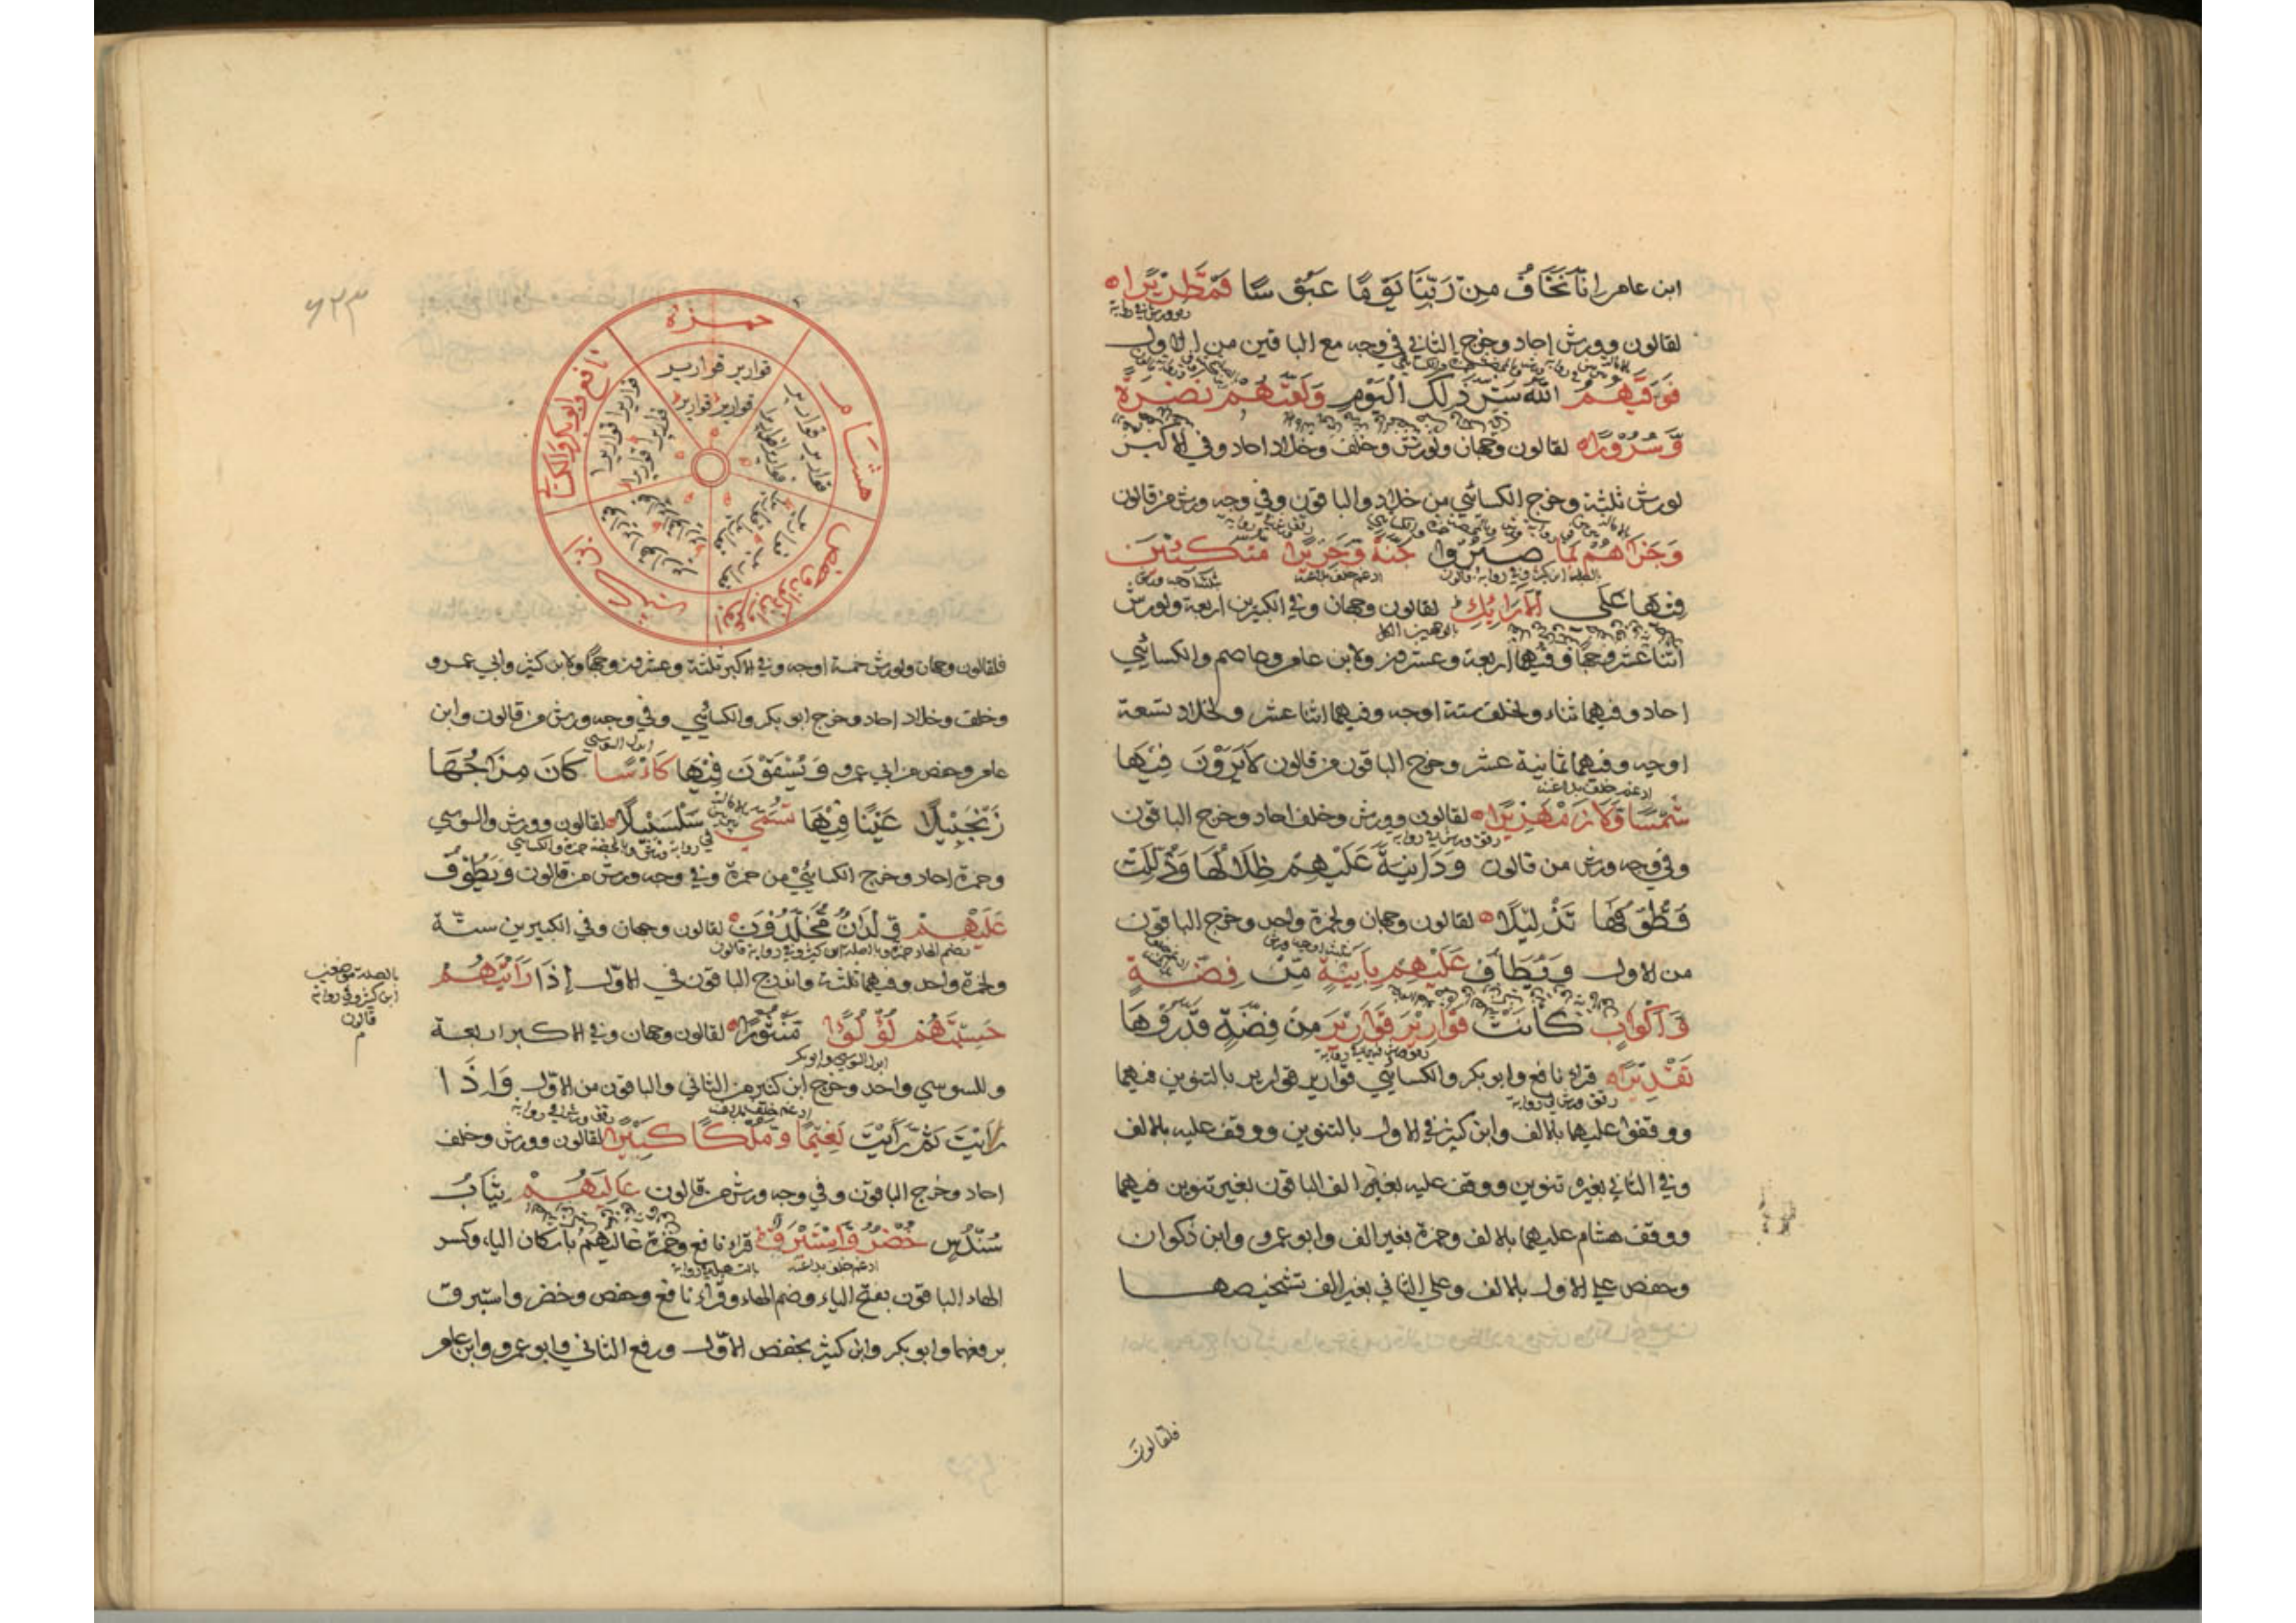 ابن عامر إنا نخاف من ربنا يوما عبوسا قمطريرا
لقالون وورش احاد وخرج الثاني في وجه مع الباقين من الاول
فوقيهم الله شر ذلك اليوم ولقيهم نضرة
وسرورا لقالون وجهان ولورش وخلف وخلاد احاد وفي الاكبر
لورش ثلثة وخرج الكسائي من خلاد والباقون وفي وجه ورش من قالون
وجزاهم بما صبروا جنة وحريرا متكئين
فيها على الارائك لقالون وجهان وفي الكبيرين اربعة ولورش
اثنا عشر وجها وفيهما اربعة وعشرون ولابن عامر وعاصم والكسائي
احاد وفيهما ثناء ولخلف ستة اوجه وفيهما اثنا عشر ولخلاد تسعة
اوجه وفيهما ثمانية عشر وخرج الباقون من قالون لا يرون فيها
ادغم خلف بلا غنة
شمسا ولا زمهريرا لقالون وورش وخلف احاد وخرج الباقون
رقق ورش في رواية
وفي وجه ورش من قالون ودانية عليهم ظلالها وذللت
قطوفها تذليلا لقالون وجهان ولحمزة واحد وخرج الباقون
من الاول ويطاف عليهم بانية من فضة
واكواب كانت قوارير قوارير من فضة قدروها
تقديرا قراء نافع وابو بكر والكسائي قوارير قوارير بالتنوين فيهما
رقق ورش في رواية
ووقفوا عليهما بالالف وابن كثير في الاول بالتنوين ووقف عليه بالالف
وفي الثاني بغير تنوين ووقف عليه بغير الف الباقون بغير تنوين فيهما
ووقف هشام عليهما بالالف وحمزة بغير الف وابو عمرو وابن ذكوان
وحفص على الاول بالالف وعلى الثاني بغير الف تشخيصها
فلقالون
حمزة
قوارير قوارير
قوارير قوارير
هشام
قوارير قوارير
قواريرا قواريرا
ابو عمرو وابن ذكوان وحفص
ابن كثير
نافع وابو بكر والكسائي
قواريرا قواريرا
فلقالون وجهان ولورش خمسة اوجه وفي الاكبر ثلثة وعشرون وجها ولابن كثير وابي عمرو
وخلف وخلاد احاد وخرج ابو بكر والكسائي وفي وجه ورش من قالون وابن
ابدل السوسي
عامر وحفص من ابي عمرو ويسقون فيها كاسا كان مزاجها
زنجبيلا عينا فيها تسمى سلسبيلا لقالون وورش والسوسي
وحمزة احاد وخرج الكسائي من حمزة وفي وجه ورش من قالون ويطوف
عليهم ولدان مخلدون لقالون وجهان وفي الكبيرين ستة
بضم الهاء حمزة وبالصلة ابن كثير وفي رواية قالون
ولحمزة واحد وفيهما ثلثة واندرج الباقون في الاول إذا رايتهم
بالصلة في موضعين
ابن كثير وفي رواية
قالون
حسبتهم لؤلؤا منثورا لقالون وجهان وفي الاكبر اربعة
ابدل السوسي وابو بكر
وللسوسي واحد وخرج ابن كثير من الثاني والباقون من الاول واذا
رايت ثم رايت نعيما وملكا كبيرا لقالون وورش وخلف
احاد وخرج الباقون وفي وجه ورش من قالون عاليهم ثياب
سندس خضر واستبرق قراء نافع وحمزة عاليهم باسكان الياء وكسر
ادغم خلف بلا غنة
الهاء الباقون بفتح الياء وضم الهاء وقراء نافع وحفص وخضر واستبرق
برفعهما وابو بكر وابن كثير بخفض الاول ورفع الثاني وابو عمرو وابن عامر